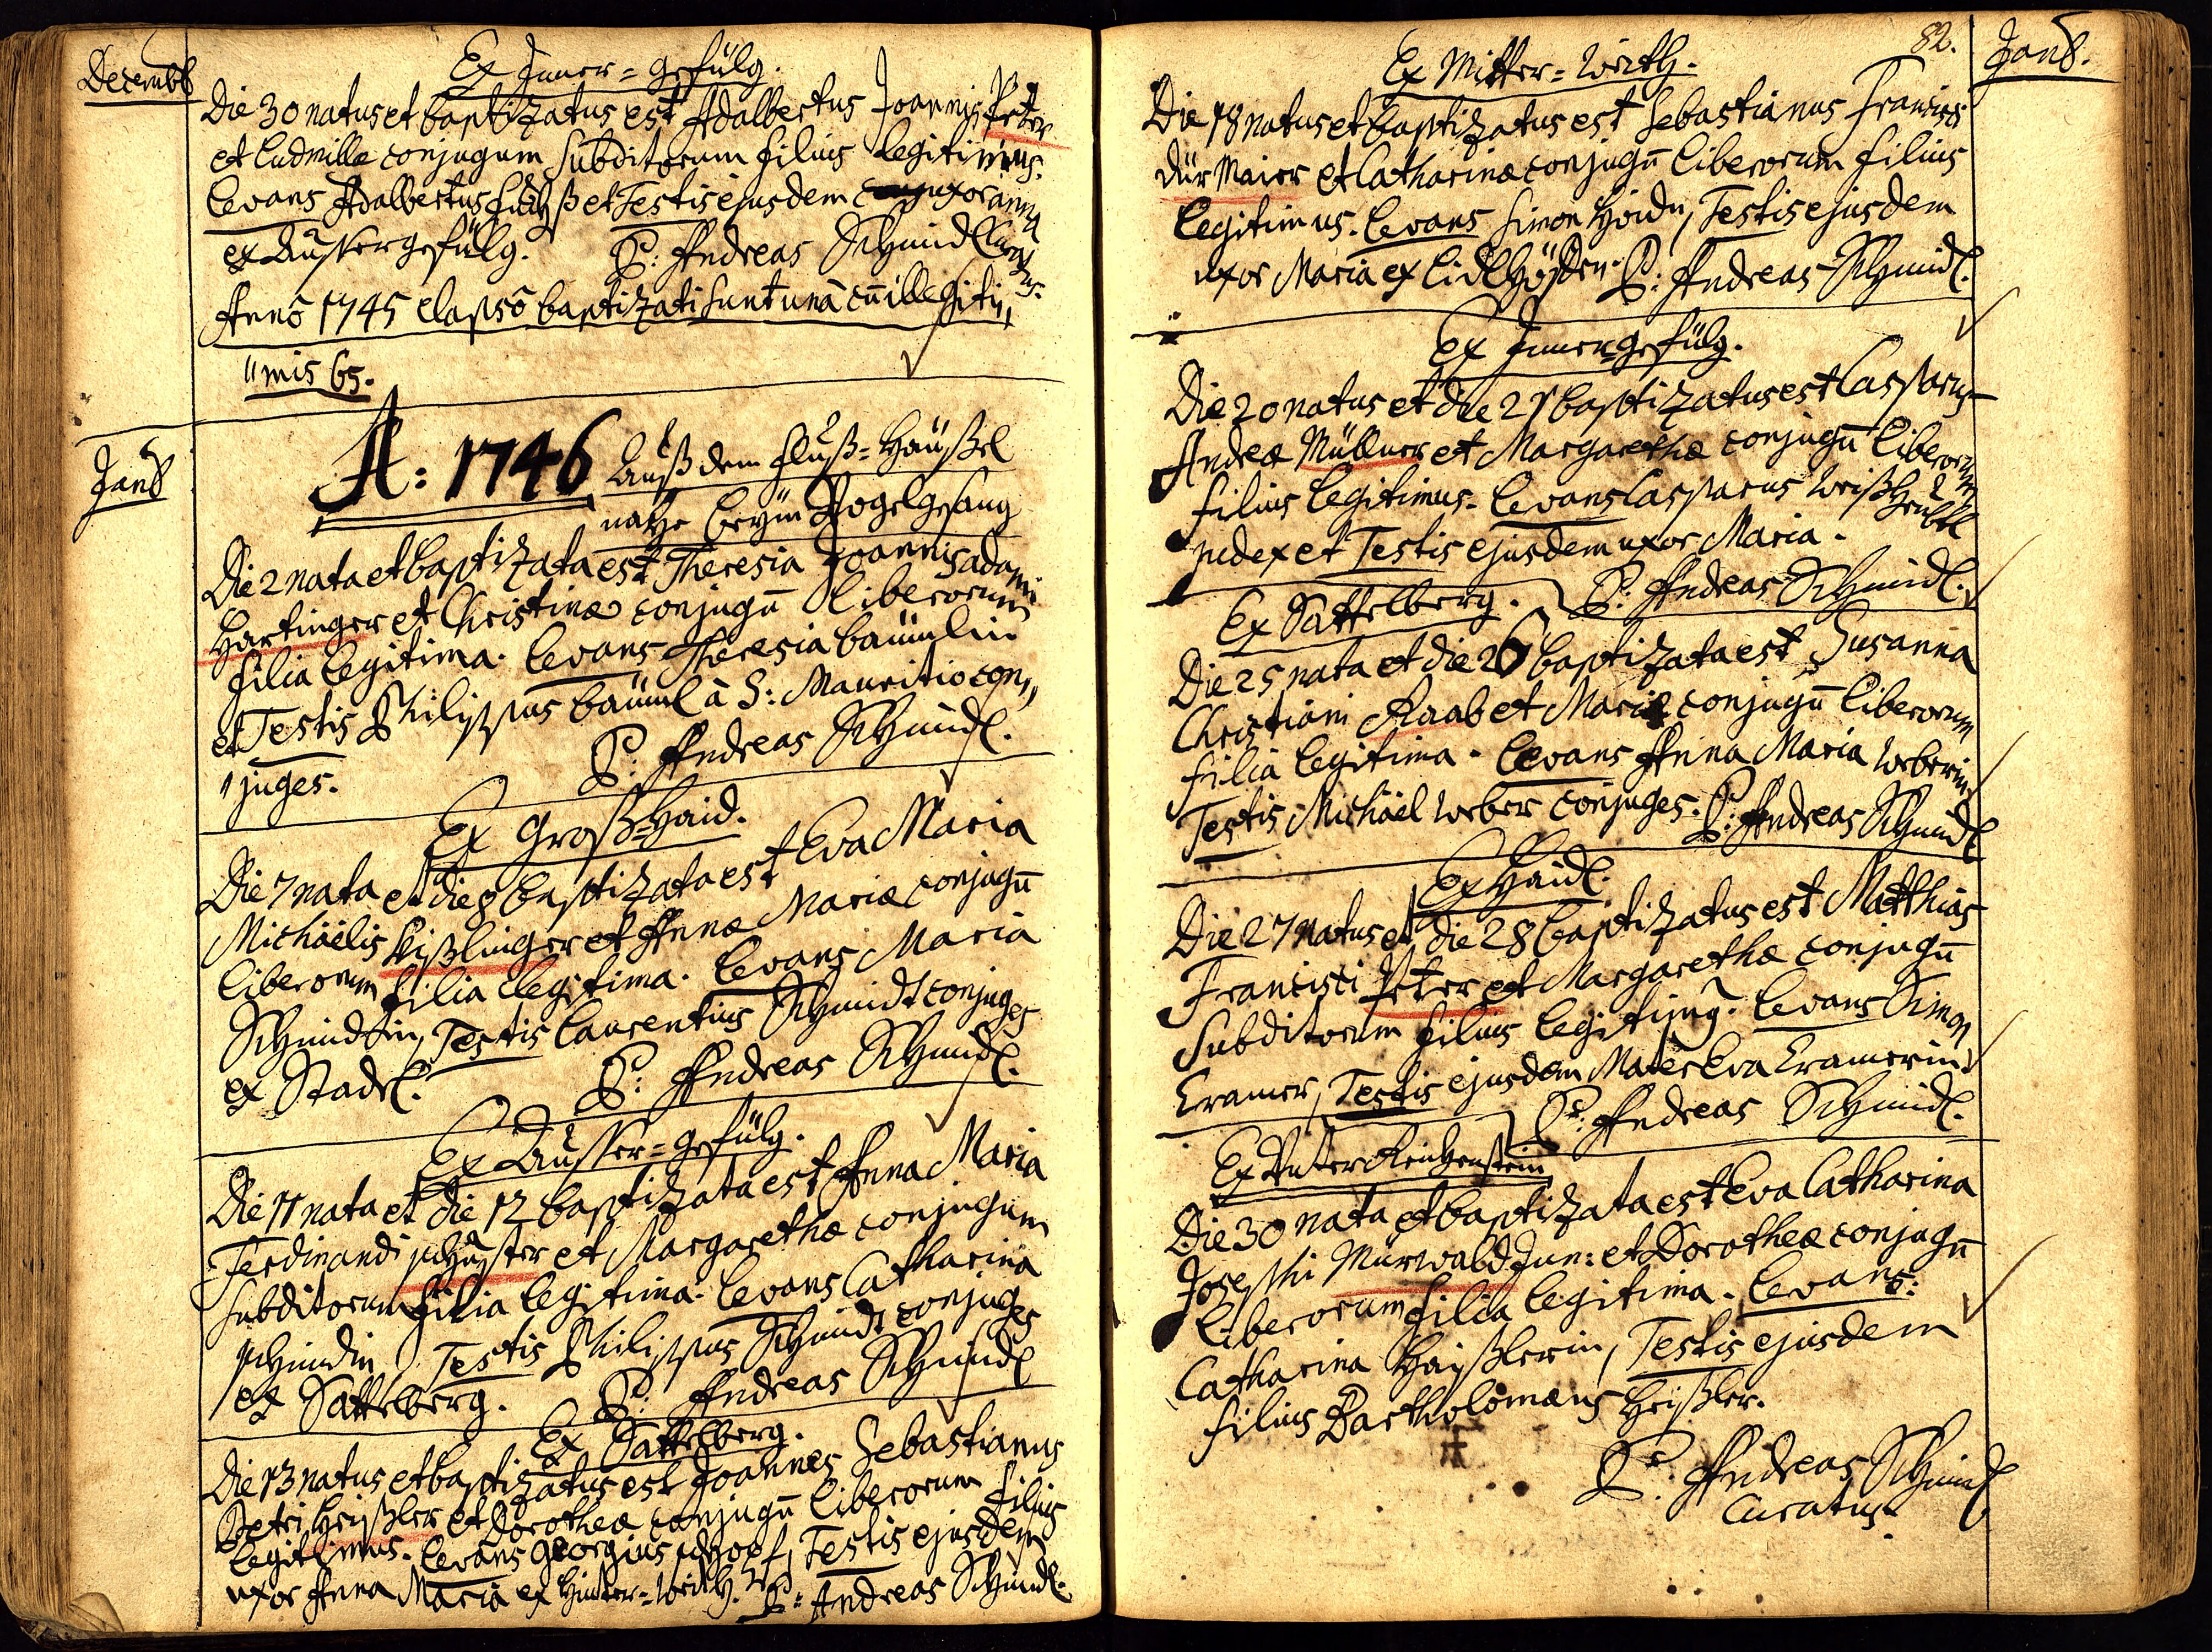 Decembr
Ex Inner=gefülg.
Die 30 natus et baptizatus est Adalbertus Joannis Peter
et Ludmillæ conjugum Subditorum filius legitimus.
Levans Adalbertus et Testis ejusdem uxor anna
ex Ausser gefülg. P: Andreas Schmidl Curatus.
Anno 1745 elapso baptizati sunt una cu illegiti,,
"mis 65.
Janr
A: 1746 Auß dem fluß=Häußl
nahe beym Vogelgesang
Die 2 nata et baptizata est Theresia Joannis adami
Hartinger et Christinæ conjugu Liberorum
filia legitima. Levans Theresia baümlin
et Testis Philippus baüml à S: Mauritio con,,
"juges. P: Andreas Schmidl.
Ex Groß=Haid.
Die 7 nata et die 8 baptizata est Eva Maria
Michäelis Kißlinger et Annæ Mariæ conjugu
liberorum filia legitima. Levans Maria
Schmidtin, Testis Laurentius Schmidt conjuges
ex Stadl. P: Andreas Schmidl.
Ex Ausser=gefülg.
Die 11 nata et die 12 baptizata est Anna Maria
Ferdinandi schuster et Margarethæ conjugum
subditorum filia legitima. Levans Catharina
schmidin, Testis Philippus Schmidt conjuges
ex Sattelberg. P: Andreas Schmidl
Ex Sattelberg.
Die 13 natus et baptizatus est Joannes Sebastianus
Petri Heißler et Dorotheæ conjugu liberorum filius
legitimus. Levans georgius schopf, Testis ejusdem
uxor Anna Maria ex Hinter=wirth. P: Andreas Schmidl.
82.
Janr.
Ex Mitter=wirth.
Die 18 natus et baptizatus est Sebastianus Francisci
Dür Maier et Catharinæ conjugu liberorum filius
legitimus. Levans Simon Hoidn, Testis ejusdem
uxor Maria ex P: Andreas Schmidl.
Ex Inner=gefülg.
Die 20 natus et die 21 baptizatus est Casparus
Andreæ Müllner et Margarethæ conjugu liberorum
filius legitimus. Levans Casparus
judex et Testis ejusdem uxor Maria.
P: Andreas Schmidl.
Ex Sattelberg.
Die 25 nata et die 26 baptizata est Susanna
Christiani Raab et Mariæ conjugu liberorum
filia legitima. Levans Anna Maria weberin,
Testis Michäel weber conjuges. P: Andreas Schmidl
Ex Haidl.
Die 27 natus et die 28 baptizatus est Matthias
Francisci Peter et Margarethæ conjugu
Subditorum filius legitimq. Levans Simon
Cramer, Testis ejusdem Mater Eva Cramerin.
P: Andreas Schmidl.
Ex Unter Reichenstein
Die 30 nata et baptizata est Eva Catharina
Josephi Mürwald Jun: et Dorotheæ conjugu
liberorum filia legitima. Levans:
Catharina Heißlerin, Testis ejusdem
filius Bartholomæus Heißler.
P: Andreas Schmidl
Curatus.